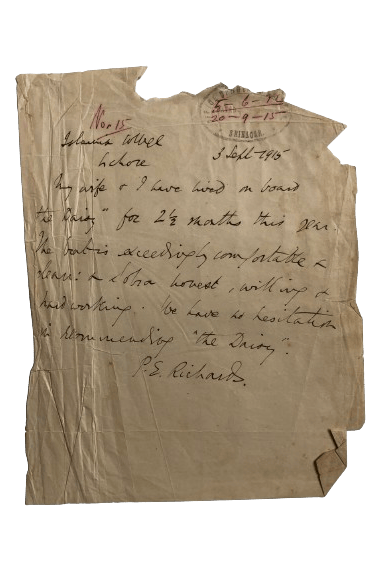 No 15
5-6-
20-9-15
SRINAGAR
Islamia College
Lahore
3 Sept 1915
My wife & I have lived on board
"the Daisy" for 2½ months this year.
The boat is exceedingly comfortable &
clean: & Sobra honest, willing &
hard working. We have no hesitation
in recommending "the Daisy".
P.E. Richards.